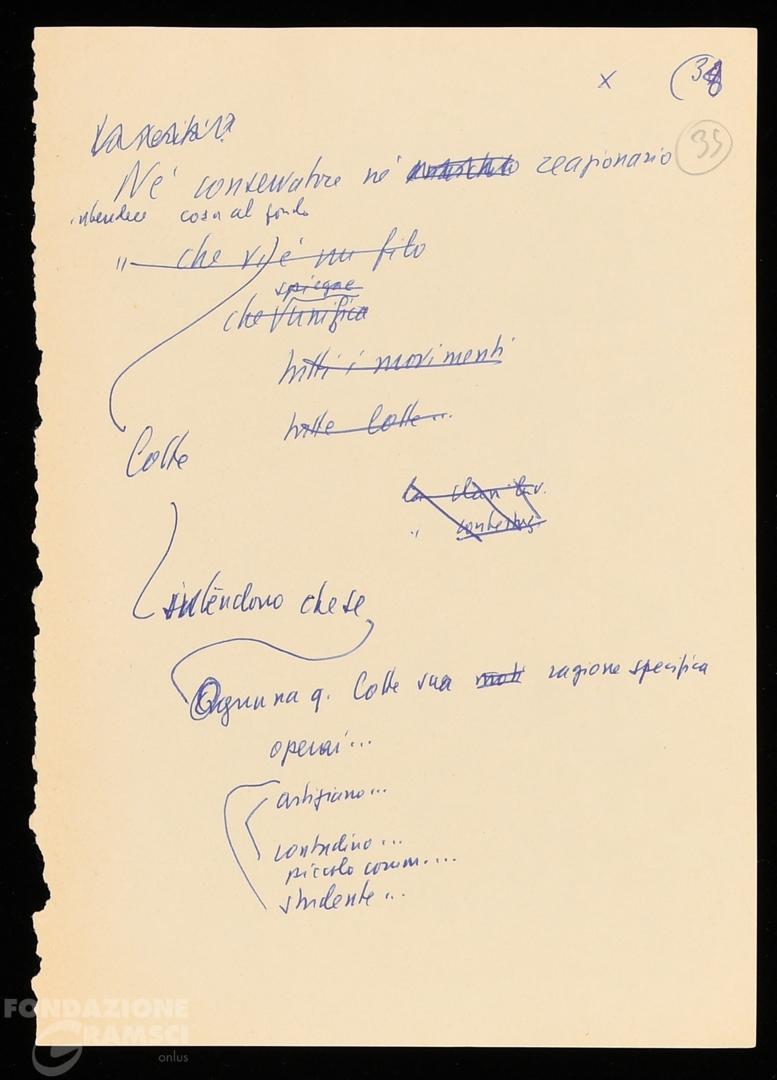 x (34
35
La verità è?
Né conservatore né reazionario
intendere cosa al fondo
" che vi è un filo
spiegae
che unifica
tutti i movimenti
tutte lotte...
Lotte
"
intendono che se
Ognuna q. lotte sua moti ragione specifica
operai...
artigiano...
contadino...
piccolo comm....
studente...
FONDAZIONE
GRAMSCI
onlus